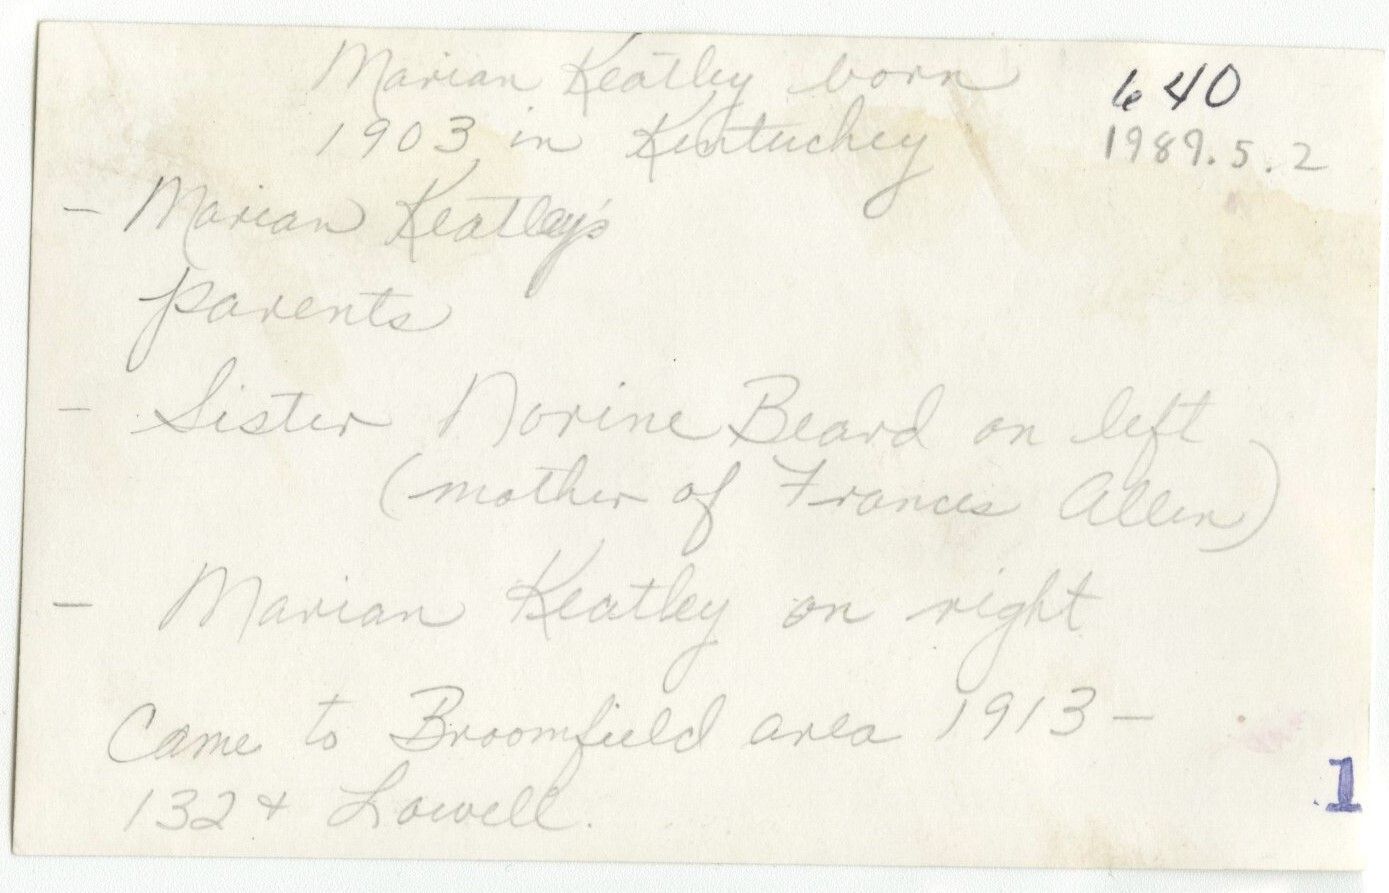 Marian Keatley born
640
1903 in Kentuckey
1989.5.2
- Marian Keatley's
parents
- Sister Norine Beard on left
(mother of Frances Allen)
- Marian Keatley on right
Came to Broomfield area 1913 -
132 & Lowell.
1